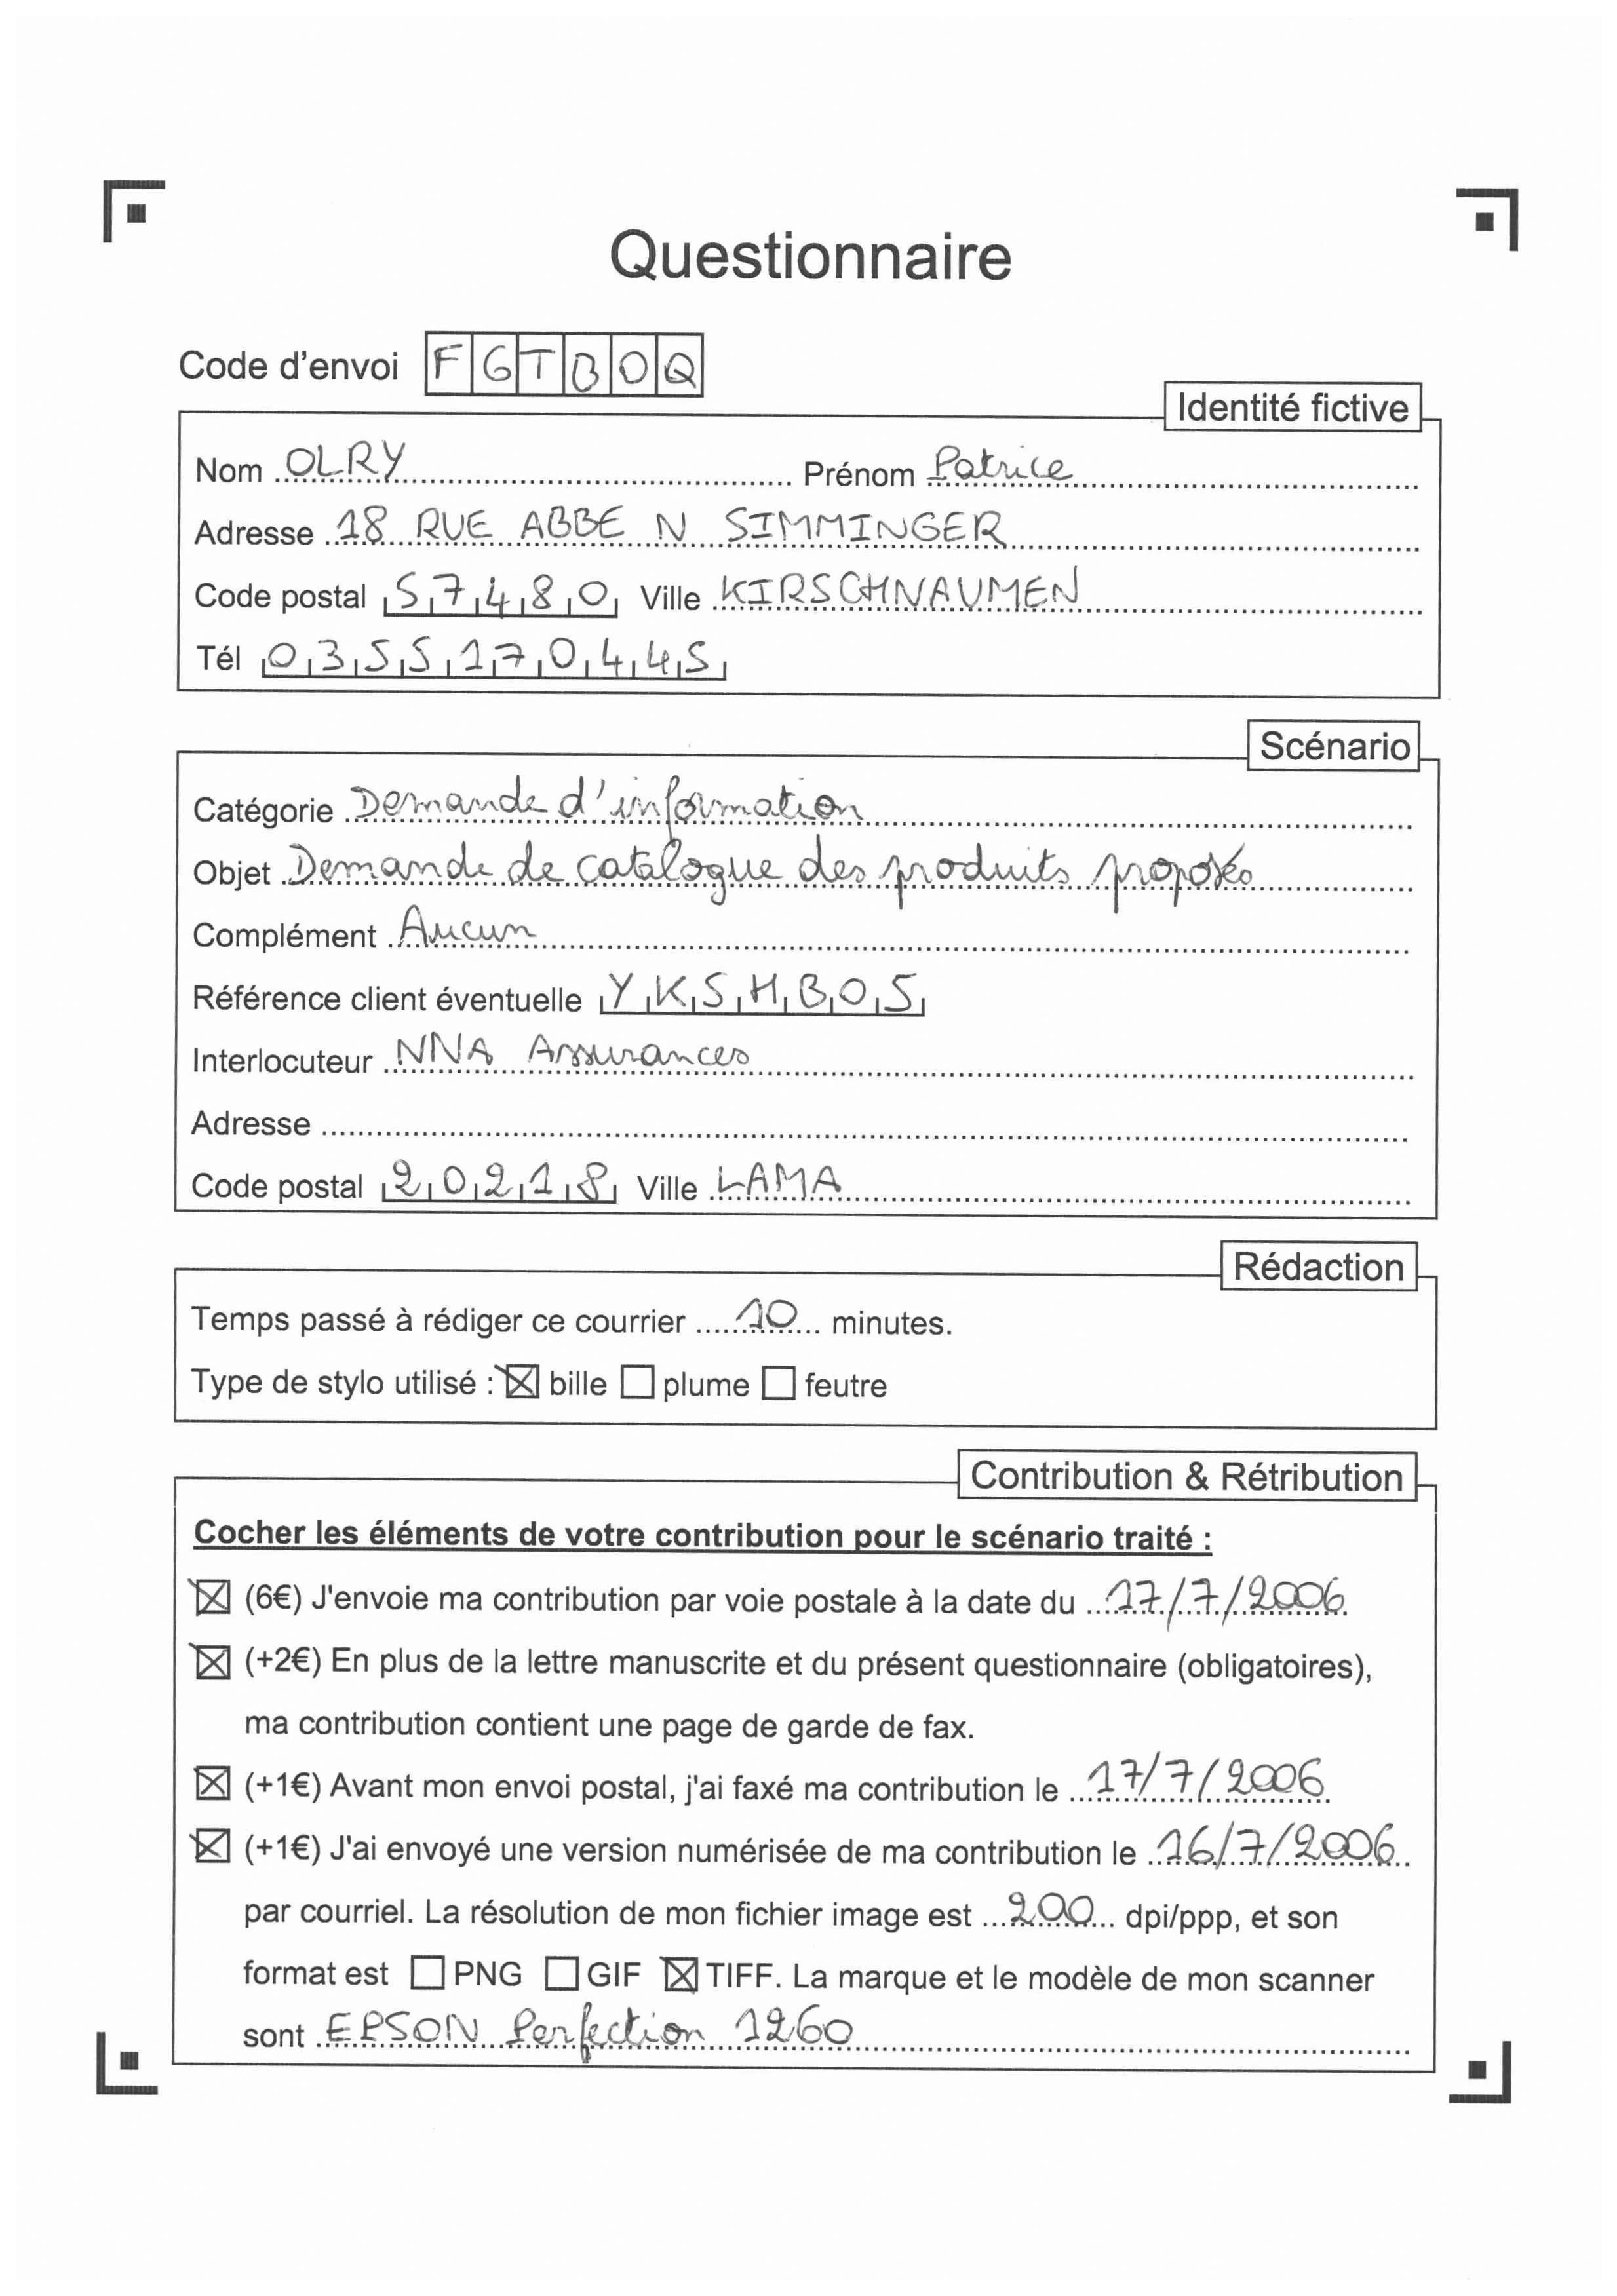 Questionnaire
Code d'envoi FGTBOQ
Identité fictive
Nom OLRY Prénom Patrice
Adresse 18 RUE ABBE N SIMMINGER
Code postal 57480 Ville KIRSCHNAUMEN
Tél 0355170445
Scénario
Catégorie Demande d'information
Objet Demande de catalogue des produits proposés
Complément Aucun
Référence client éventuelle YKSHBOS
Interlocuteur NNA Assurances
Adresse
Code postal 20218 Ville LAMA
Rédaction
Temps passé à rédiger ce courrier 10 minutes.
Type de stylo utilisé : ☒ bille ☐ plume ☐ feutre
Contribution & Rétribution
Cocher les éléments de votre contribution pour le scénario traité :
☒ (6€) J'envoie ma contribution par voie postale à la date du 17/7/2006
☒ (+2€) En plus de la lettre manuscrite et du présent questionnaire (obligatoires),
ma contribution contient une page de garde de fax.
☒ (+1€) Avant mon envoi postal, j'ai faxé ma contribution le 17/7/2006
☒ (+1€) J'ai envoyé une version numérisée de ma contribution le 16/7/2006
par courriel. La résolution de mon fichier image est 200 dpi/ppp, et son
format est ☐ PNG ☐ GIF ☒ TIFF. La marque et le modèle de mon scanner
sont EPSON Perfection 1260